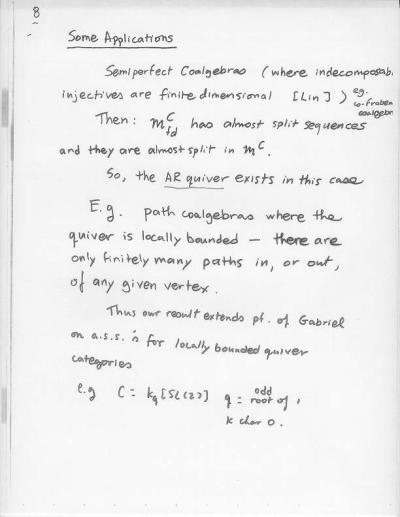 8
Some Applications
Semiperfect Coalgebras (where indecomposab
injectives are finite dimensional [Lin]) eg.
co-Froben
coalgebr
Then: m^C_fd has almost split sequences
and they are almost split in m^C.
So, the AR quiver exists in this case
E.g. path coalgebras where the
quiver is locally bounded — there are
only finitely many paths in, or out,
of any given vertex.
Thus our result extends pf. of Gabriel
on a.s.s.'s for locally bounded quiver
categories
e.g C = k_q[SL(2)] q = odd root of 1
k char 0.